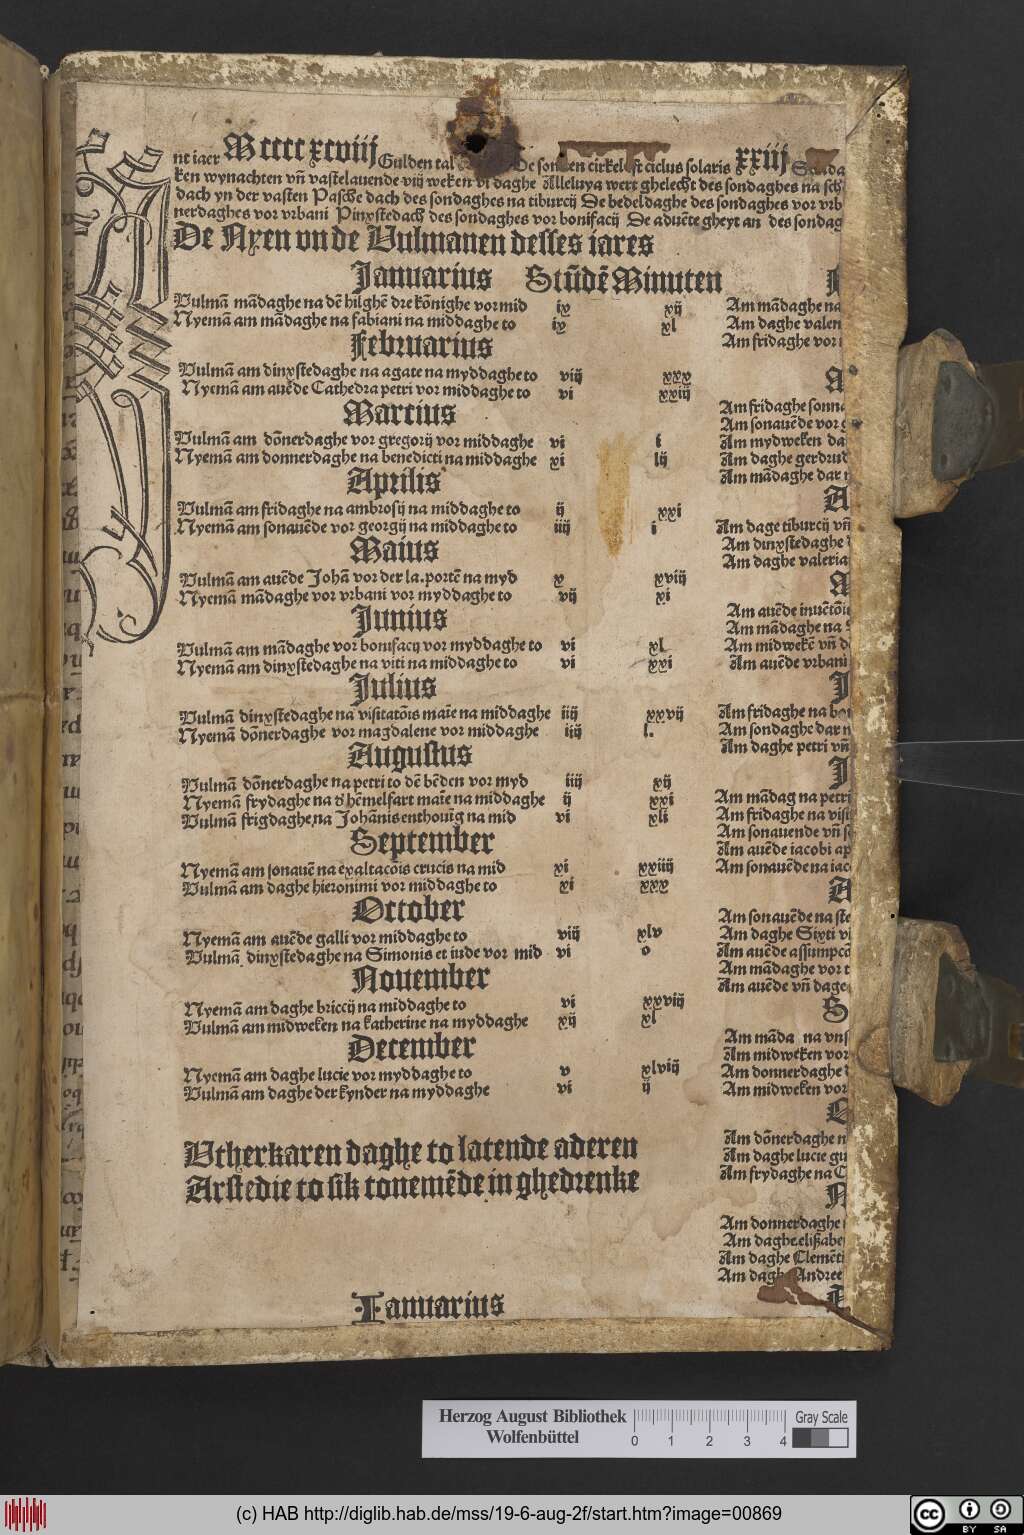 nt iaer Mccccxcviij Gulden tal De sonnen cirkel est ciclus solaris xxiij
ken wynachten vñ vastelauende viij weken vi daghe Alleluya wert ghelecht des sondaghes na
dach yn der vasten Pasche dach des sondaghes na tiburcij De bedeldaghe des sondaghes vor vrb
nerdaghes vor vrbani Pinxstedach des sondaghes vor bonifacij De aduēte gheyt an des sondag
De Nyen vnde Vulmanen desses iares
Januarius Stūdē Minuten
Vulmā mādaghe na dē hilghē dre kōnighe vor mid ix xij
Nyemā am mādaghe na fabiani na middaghe to ix xl
Februarius
Vulmā am dinxstedaghe na agate na myddaghe to viij xxx
Nyemā am auēde Cathedra petri vor middaghe to vi xxiij
Martius
Vulmā am dōnerdaghe vor gregorij vor middaghe vi i
Nyemā am donnerdaghe na benedicti na middaghe xi lij
Aprilis
Vulmā am fridaghe na ambrosij na middaghe to ij xxi
Nyemā am sonauēde vor georgij na middaghe to iiij i
Maius
Vulmā am auēde Johā vor der la. portē na myd x xviij
Nyemā mādaghe vor vrbani vor myddaghe to vij xi
Junius
Vulmā am mādaghe vor bonifacij vor myddaghe to vi xl
Nyemā am dinxstedaghe na viti na middaghe to vi xxi
Julius
Vulmā dinxstedaghe na visitatōis marie na middaghe iij xxvij
Nyemā dōnerdaghe vor magdalene vor middaghe iij l.
Augustus
Vulmā dōnerdaghe na petri to dē bēden vor myd iij xij
Nyemā frydaghe na d' hēmelfart marie na middaghe ij xxi
Vulmā frigdaghe na Johānis enthouīg na mid vi xli
September
Nyemā am sonauē na exaltacōis crucis na mid xi xxiij
Vulmā am daghe hieronimi vor middaghe to xi xxx
October
Nyemā am auēde galli vor middaghe to viij xlv
Vulmā dinxstedaghe na Simonis et iude vor mid vi o
Nouember
Nyemā am daghe briccij na middaghe to vi xxviij
Vulmā am midweken na katherine na myddaghe xij xl
December
Nyemā am daghe lucie vor myddaghe to v xlviij
Vulmā am daghe der kynder na myddaghe vi ij
Vtherkaren daghe to latende aderen
Arstedie to sik tonemēde in ghedrenke
Januarius
Am mādaghe na
Am daghe valen
Am fridaghe vor
A
Am fridaghe sonna
Am sonauēde vor g
Am mydweken da
Am daghe gerdrud
Am mādaghe dar n
A
Am dage tiburcij vñ
Am dinxstedaghe
Am daghe valeria
A
Am auēde inuētōis
Am mādaghe na
Am midwekē vñ d
Am auēde vrbani
J
Am fridaghe na bo
Am sondaghe dar n
Am daghe petri vñ
J
Am māndag na petri
Am fridaghe na visi
Am sonauende vñ s
Am auēde iacobi ap
Am sonauēde na iac
A
Am sonauēde na ste
Am daghe Sixti vi
Am auēde assumpcō
Am māndaghe vor
Am auēde vñ dage
S
Am māda na vns
Am midweken vor
Am donnerdaghe
Am midweken vor
Am dōnerdaghe
Am daghe lucie gu
Am frydaghe na
Am donnerdaghe
Am daghe elißabe
Am daghe Clemēti
Am daghe Andree
Herzog August Bibliothek
Wolfenbüttel
0 1 2 3 4
Gray Scale
(c) HAB http://diglib.hab.de/mss/19-6-aug-2f/start.htm?image=00869
cc BY SA